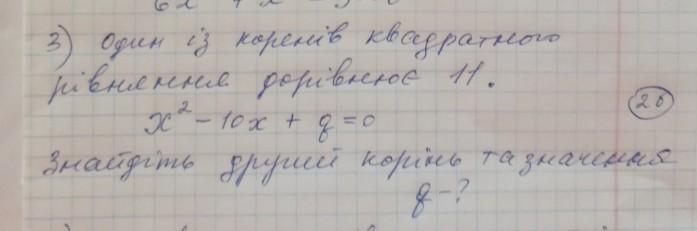 3) Один із коренів квадратного
рівняння дорівнює 11.
x² - 10x + q = 0
(2б)
Знайдіть другий корінь та значення
q - ?